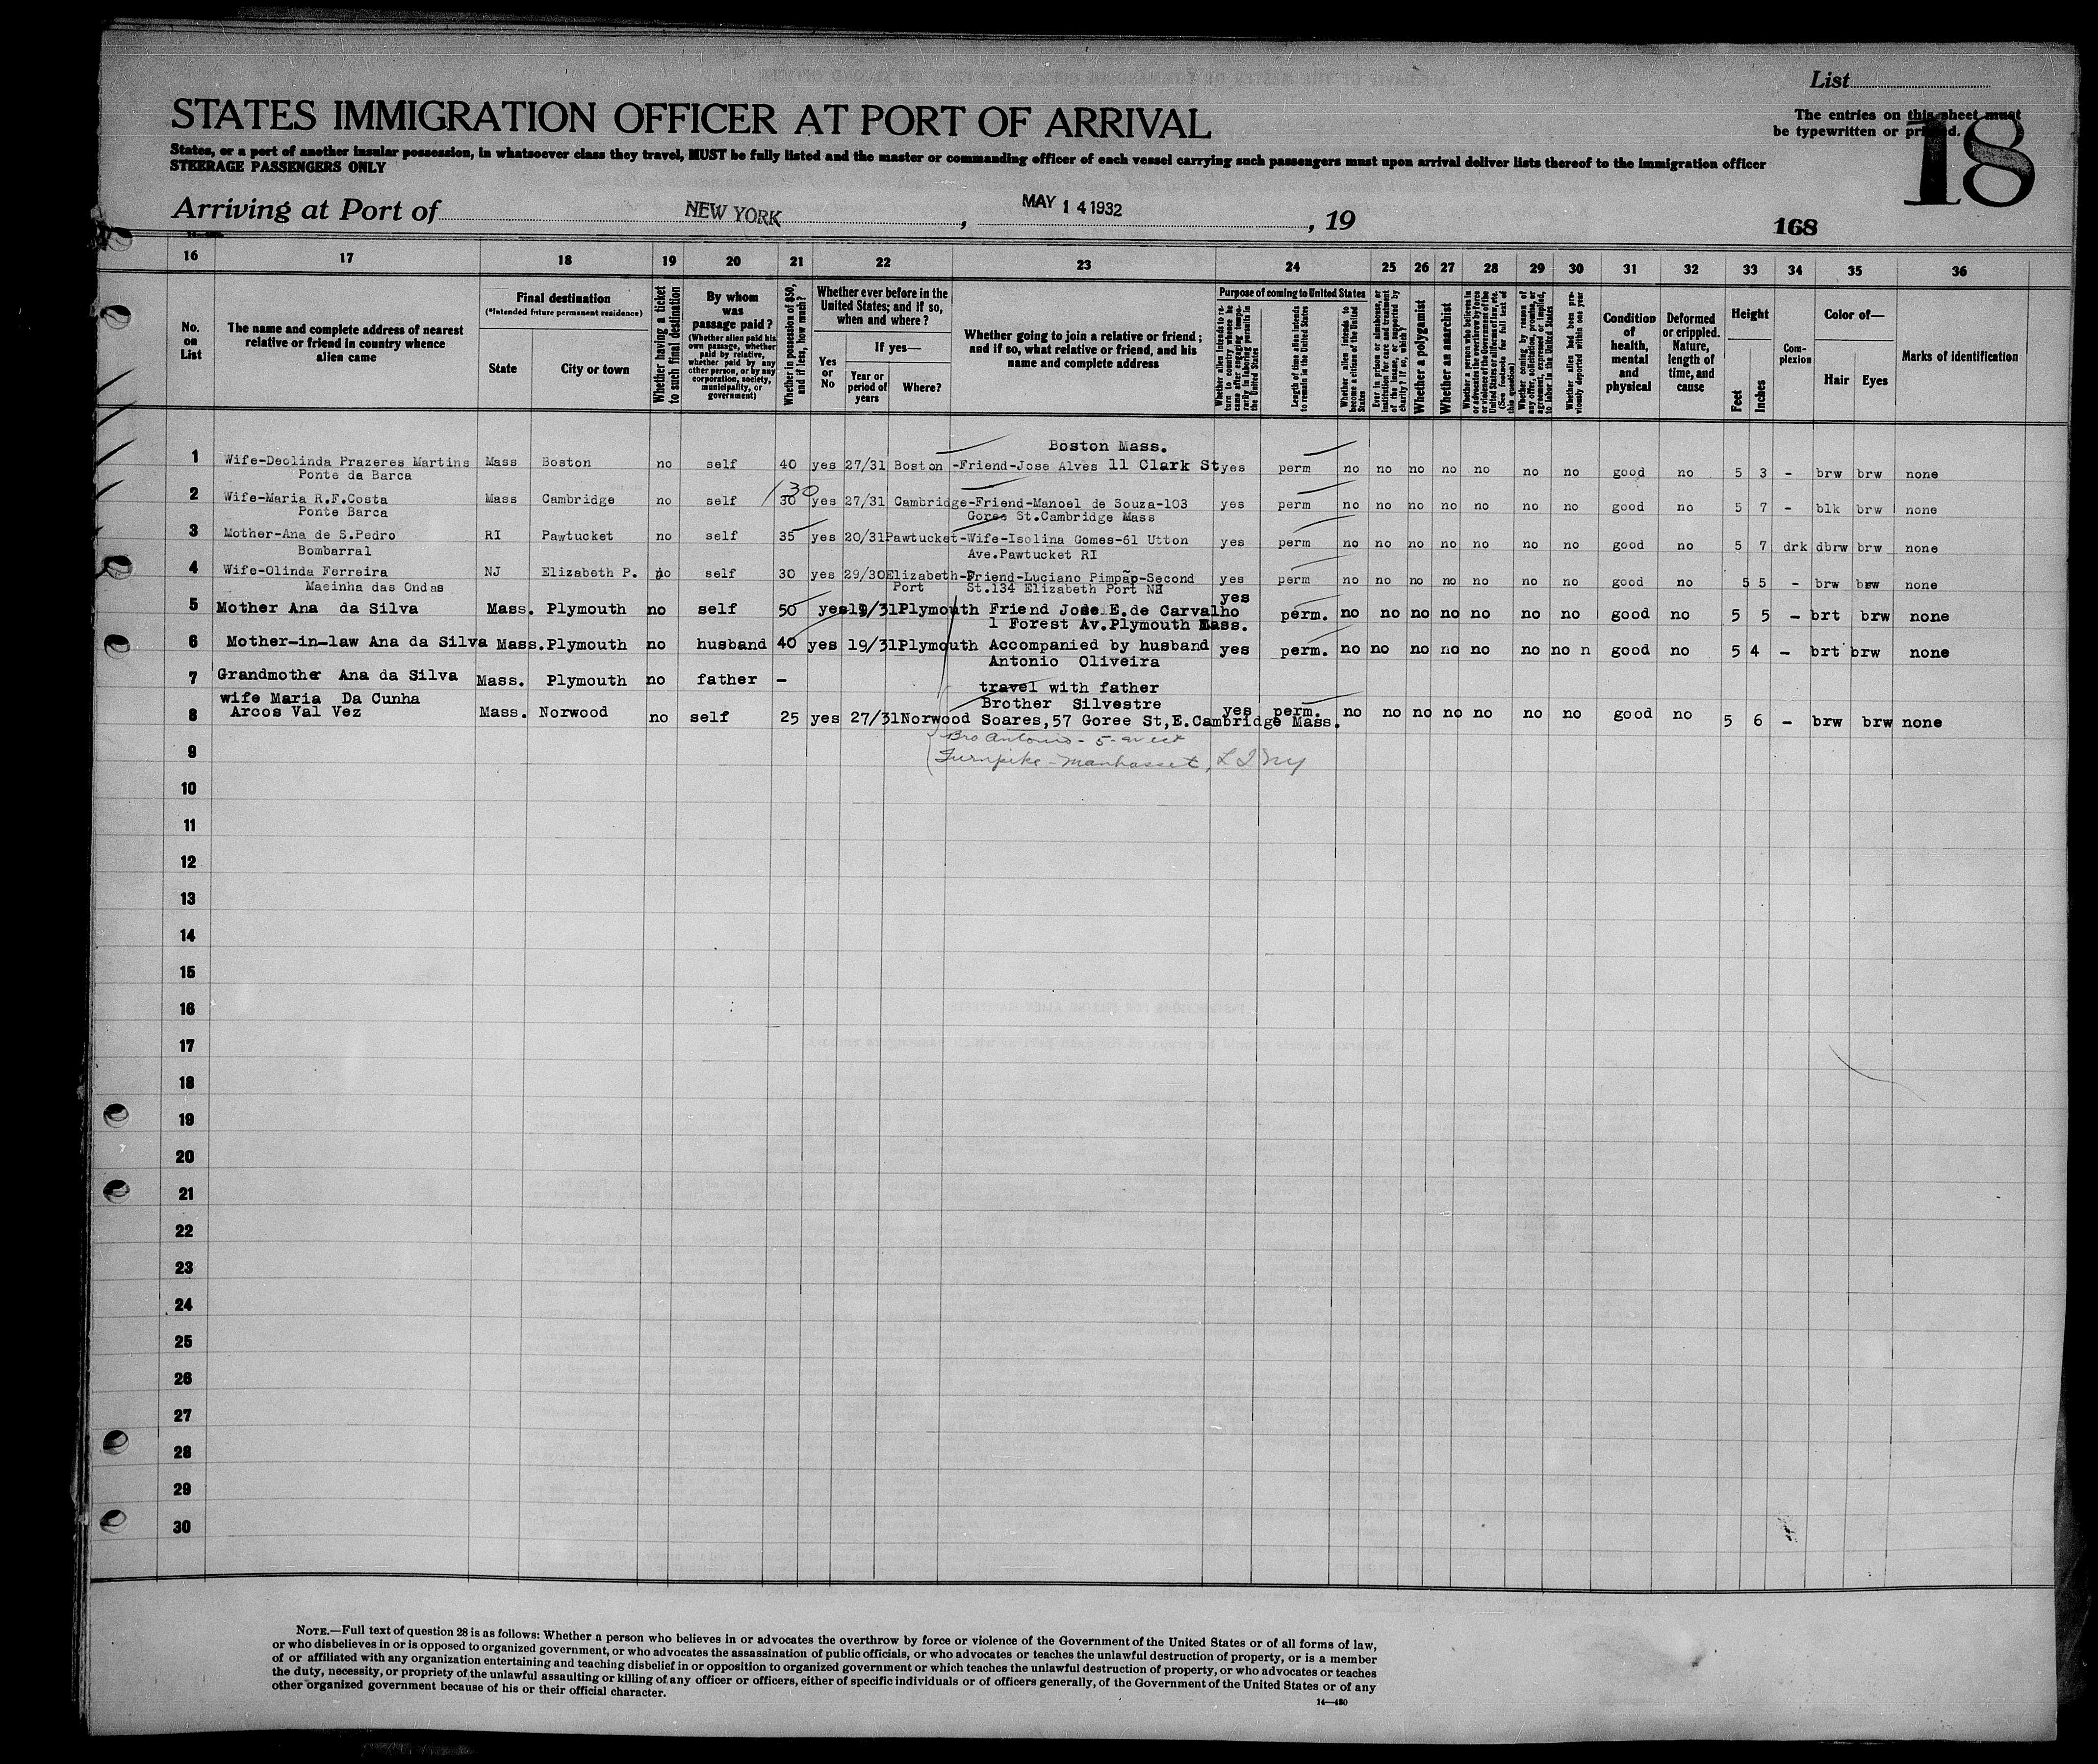 List
STATES IMMIGRATION OFFICER AT PORT OF ARRIVAL
The entries on this sheet must
be typewritten or printed.
18
States, or a port of another insular possession, in whatsoever class they travel, MUST be fully listed and the master or commanding officer of each vessel carrying such passengers must upon arrival deliver lists thereof to the immigration officer
STEERAGE PASSENGERS ONLY
Arriving at Port of NEW YORK, MAY 14 1932, 19
168
16 17 18 19 20 21 22 23 24 25 26 27 28 29 30 31 32 33 34 35 36
No. on List
The name and complete address of nearest relative or friend in country whence alien came
Final destination
(*Intended future permanent residence)
State
City or town
Whether having a ticket to such final destination
By whom was passage paid?
(Whether alien paid his own passage, whether paid by relative, whether paid by any other person, or by any corporation, society, municipality, or government)
Whether in possession of $50, and if less, how much?
Whether ever before in the United States; and if so, when and where?
Yes or No
If yes—
Year or period of years
Where?
Whether going to join a relative or friend; and if so, what relative or friend, and his name and complete address
Purpose of coming to United States
Whether alien intends to return to country whence he came after engaging temporarily in laboring pursuits in the United States
Length of time alien intends to remain in the United States
Whether alien intends to become a citizen of the United States
Ever in prison or almshouse, or institution for care and treatment of the insane, or supported by charity? If so, which?
Whether a polygamist
Whether an anarchist
Whether a person who believes in or advocates the overthrow by force or violence of the Government of the United States or all forms of law, etc. (See footnote for full text of this question)
Whether coming by reason of any offer, solicitation, promise, or agreement, expressed or implied, to labor in the United States
Whether alien had been previously deported within one year
Condition of health, mental and physical
Deformed or crippled. Nature, length of time, and cause
Height
Feet
Inches
Complexion
Color of—
Hair
Eyes
Marks of identification
Boston Mass.
1 Wife-Deolinda Prazeres Martins Mass Boston no self 40 yes 27/31 Boston -Friend-Jose Alves 11 Clark St yes perm no no no no no no no good no 5 3 - brw brw none
Ponte da Barca
130
2 Wife-Maria R.F.Costa Mass Cambridge no self 30 yes 27/31 Cambridge-Friend-Manoel de Souza-103 yes perm no no no no no no no good no 5 7 - blk brw none
Ponte Barca Gores St.Cambridge Mass
3 Mother-Ana de S.Pedro RI Pawtucket no self 35 yes 20/31Pawtucket-Wife-Isolina Gomes-61 Utton yes perm no no no no no no no good no 5 7 drk dbrw brw none
Bombarral Ave.Pawtucket RI
4 Wife-Olinda Ferreira NJ Elizabeth P. no self 30 yes 29/30Elizabeth-Friend-Luciano Pimpão-Second yes perm no no no no no no no good no 5 5 - brw brw none
Maeinha das Ondas Port St.134 Elizabeth Port NJ
yes
5 Mother Ana da Silva Mass. Plymouth no self 50 yes 19/31Plymouth Friend Jose E.de Carvalho perm. no no no no no no no good no 5 5 - brt brw none
1 Forest Av.Plymouth Mass.
6 Mother-in-law Ana da Silva Mass.Plymouth no husband 40 yes 19/31Plymouth Accompanied by husband yes perm. no no no no no no no n good no 5 4 - brt brw none
Antonio Oliveira
7 Grandmother Ana da Silva Mass. Plymouth no father -
travel with father
wife Maria Da Cunha Brother Silvestre
8 Arcos Val Vez Mass. Norwood no self 25 yes 27/31Norwood Soares,57 Goree St,E.Cambridge Mass. yes perm. no no no no no no no good no 5 6 - brw brw none
Bro Antonio - 5-West
9 Turnpike - Manhasset, L I NY
10
11
12
13
14
15
16
17
18
19
20
21
22
23
24
25
26
27
28
29
30
NOTE.—Full text of question 28 is as follows: Whether a person who believes in or advocates the overthrow by force or violence of the Government of the United States or of all forms of law,
or who disbelieves in or is opposed to organized government, or who advocates the assassination of public officials, or who advocates or teaches the unlawful destruction of property, or is a member
of or affiliated with any organization entertaining and teaching disbelief in or opposition to organized government or which teaches the unlawful destruction of property, or who advocates or teaches
the duty, necessity, or propriety of the unlawful assaulting or killing of any officer or officers, either of specific individuals or of officers generally, of the Government of the United States or of any
other organized government because of his or their official character.
14—480